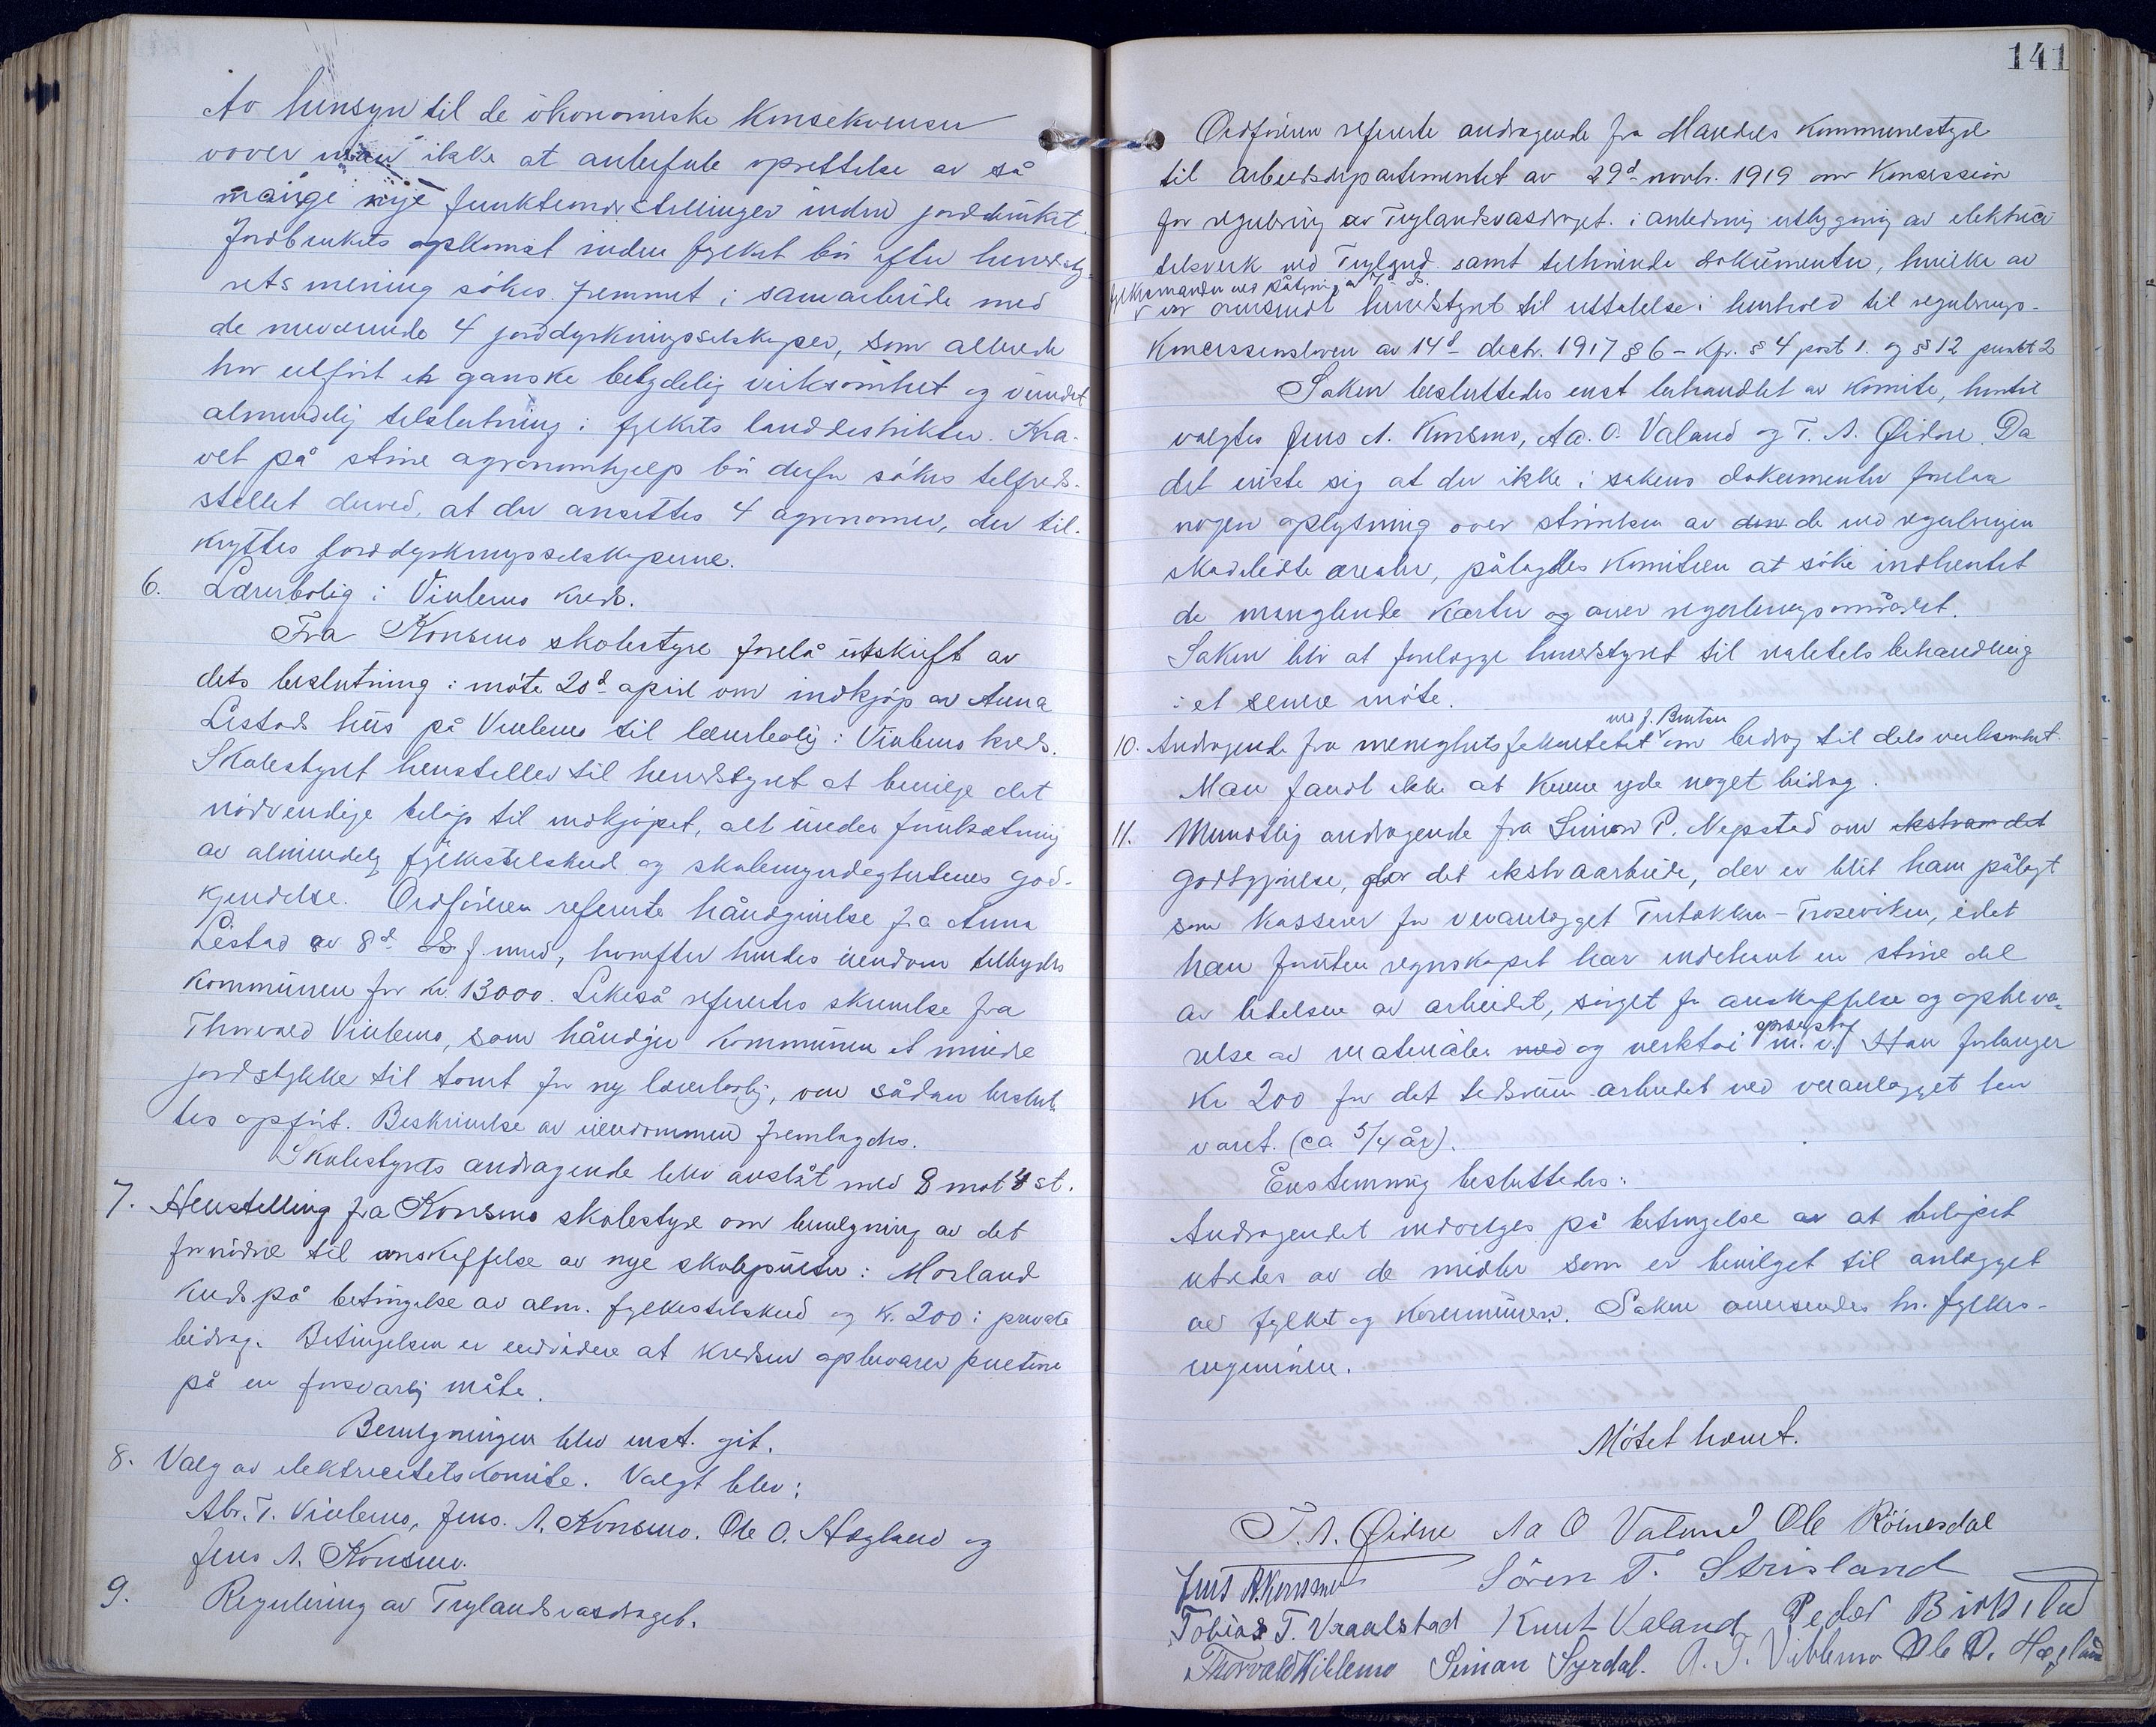 Av hensyn til de økonomiske konsekvenser
vover man ikke at anbefale oprettelse av så
mange nye funktionærstillinger inden jordbruket.
Jordbrukets opkomst inden fylket bør efter herredsty-
rets mening søkes fremmet i samarbeide med
de nuværende 4 jorddyrkningsselskaper, som allerede
har utført en ganske betydelig virksomhet og vundet
almindelig tilslutning i fylkets landdistrikter. Kra-
vet på større agronomhjelp bør derfor søkes tilfreds-
stillet derved, at der ansættes 4 agronomer, der til-
knyttes jorddyrkningsselskaperne.
6. Lærerbolig i Viblemo kreds.
Fra Konsmo skolestyre forelå utskrift av
dets beslutning i møte 20d april om indkjøp av Anna
Lestads hus på Viblemo til lærerbolig i Viblemo kreds.
Skolestyret henstiller til herredstyret at bevilge det
nødvendige beløp til indkjøpet, alt under forutsætning
av almindelig fylkestilskud og skolemyndigheternes god-
kjendelse. Ordføreren refererte håndgivelse fra Anna
Lestad av 8d f. mnd, hvorefter hendes eiendom tilbydes
kommunen for kr. 13000. Likeså refertes skrivelse fra
Thorvald Viblemo, som håndgir kommunen et mindre
jordstykke til tomt for ny lærerbolig, om sådan beslut-
tes opført. Beskrivelse av eiendommen fremlagdes.
Skolestyrets andragende blev avslåt med 8 mot 4 st.
7. Henstilling fra Konsmo skolestyre om bevilgning av det
fornødne til anskaffelse av nye skolepulter i Mosland
kreds på betingelse av alm. fylkestilskud og kr. 200 i private
bidrag. Betingelsen er endvidere at kredsen opbevarer pultene
på en forsvarlig måte.
Bevilgningen blev enst. git.
8. Valg av elektricitetskomite. Valgt blev:
Abr. T. Viblemo, Jens. A. Konsmo. Ole O. Hægland og
Jens A. Konsmo.
9. Regulering av Trylandsvasdraget.
141
Ordføreren refererte andragende fra Mandals kommunestyre
til Arbeidsdepartementet av 29d novbr. 1919 om Koncession
for regulering av Trylandsvasdraget i anledning utbygning av elektrici
tetsverk ved Tryland samt tilhørende dokumenter, hvilke av
fylkesmanden ved påtegning av
er oversendt herredstyret til uttalelse i henhold til regulerings-
koncessionsloven av 14d decbr. 1917 § 6 - kfr. § 4 post 1. og § 12 punkt 2
Saken besluttedes enst behandlet av komite, hvortil
valgtes Jens A. Konsmo, Aa. O. Valand og T. A. Øidne. Da
det viste sig at der ikke i sakens dokumenter forelaa
nogen oplysning over størrelsen av den de ved reguleringen
skadelidte arealer, pålagdes komiteen at søke indhentet
de manglende karter og over reguleringsområdet.
Saken blir at forelægge herredstyret til realitetsbehandling
i et senere møte.
10. Andragende fra menighetsfakultetet ved J. Brutsen om bidrag til dets virksomhet.
Man fandt ikke at kunne yde noget bidrag.
11. Mundtlig andragende fra Simon P. Nepsted om ekstra det
godtgjørelse, for det ekstraarbeide, der er blit ham pålagt
som kasserer for veianlægget Troseviken, idet
han foruten regnskapet har indehavt en større del
av ledelsen av arbeidet, sørget for anskaffelse og opbeva-
relse av materialer med og verktøi sprængstof m. v. Han forlanger
kr 200 for det tidsrum arbeidet ved veianlægget har
varet. (ca 5/4 år).
Enstemmig besluttedes:
Andragendet indvilges på betingelse av at beløpet
utredes av de midler som er bevilget til anlægget
av fylket og kommunen. Saken oversendes hr. fylkes-
ingeniøren.
Møtet hævet.
T. A. Øidne Aa O Valand Ole Röinesdal
Jens A. Konsmo Sören T. Strisland
Tobias T. Vraalstad Knut Valand Peder Birkeland
Thorvald Viblemo Simon Syrdal. A. T. Viblemo Ole O. Hægland